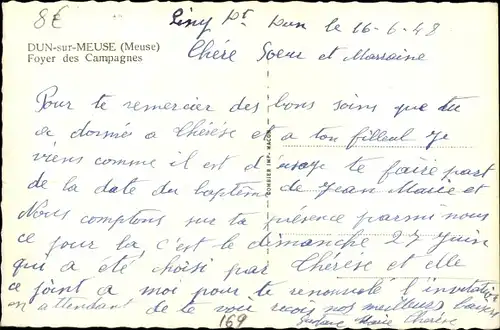 8€
Liny Dt Dun le 16-6-48
DUN-sur-MEUSE (Meuse)
Foyer des Campagnes
Chère Soeur et Marraine
COMBIER IMP. MACON
Pour te remercier des bons soins que tu
a donnés a Thérèse et a ton filleul Je
viens comme il est d'usage te faire part
de la date du baptême de Jean Marie et
Nous comptons sur ta présence parmi nous
ce jour la, c'est le dimanche 27 Juin
qui a été choisi par Thérèse et elle
ce joint a moi pour te renouvelé l'invitation
en attendant de te voir reçois nos meilleurs baisers
169
Gustave Marie Thérèse